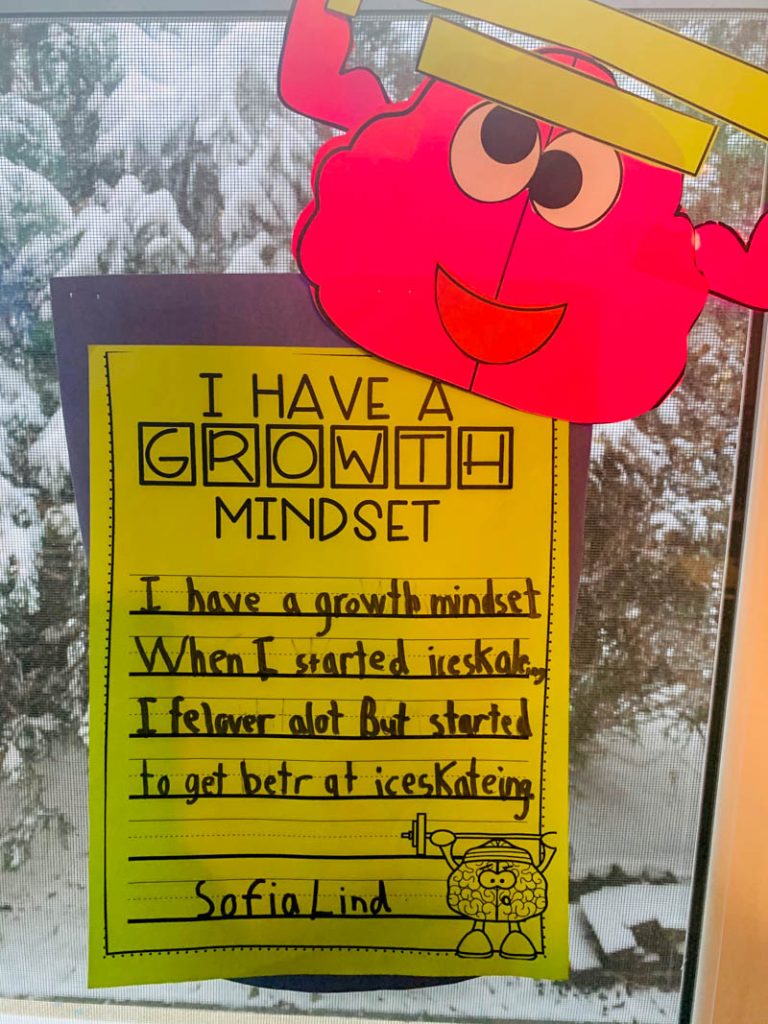 I HAVE A
GROWTH
MINDSET
I have a growth mindset
When I started iceskateing
I felover alot But started
to get betr at iceskateing
Sofia Lind